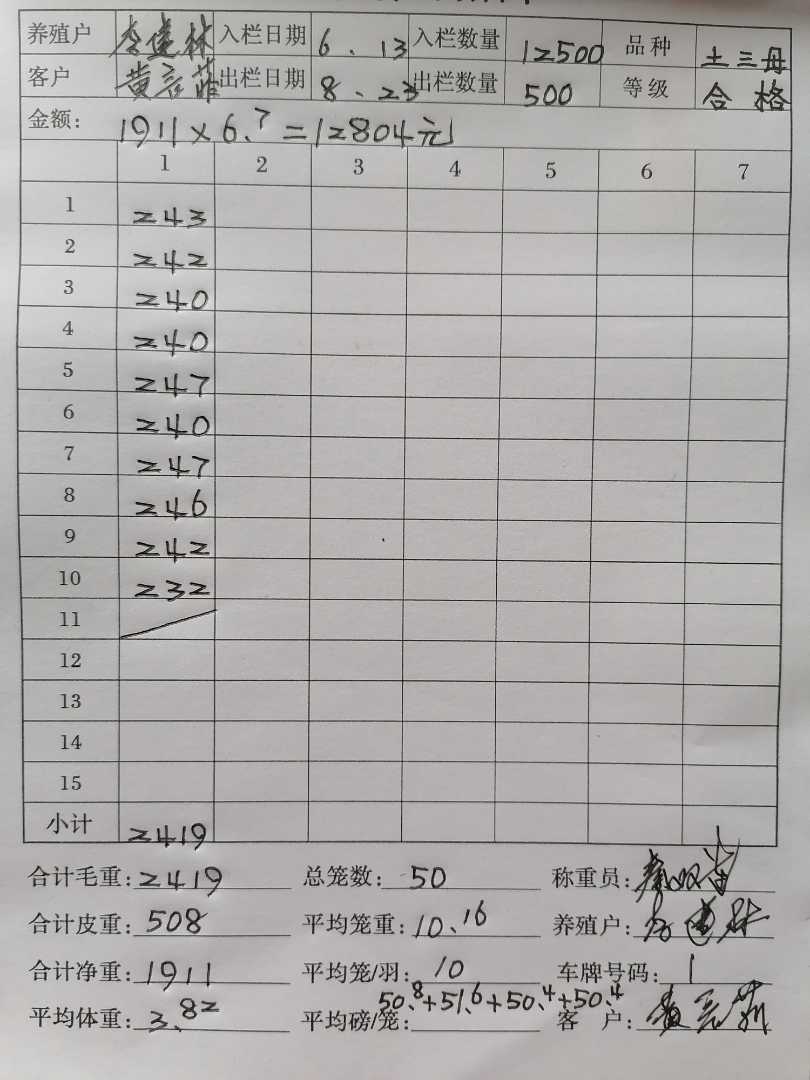 养殖户 李建林 入栏日期 6.13 入栏数量 12500 品种 土三母
客户 黄 出栏日期 8.23 出栏数量 500 等级 合格
金额: 1911×6.7=12804元
1 2 3 4 5 6 7
1 243
2 242
3 240
4 240
5 247
6 240
7 247
8 246
9 242
10 232
11
12
13
14
15
小计 2419
合计毛重: 2419 总笼数: 50 称重员:
合计皮重: 508 平均笼重: 10.16 养殖户: 李建林
合计净重: 1911 平均笼/羽: 10 车牌号码: 1
50.8+51.6+50.4+50.4
平均体重: 3.82 平均磅/笼: 客户: 黄